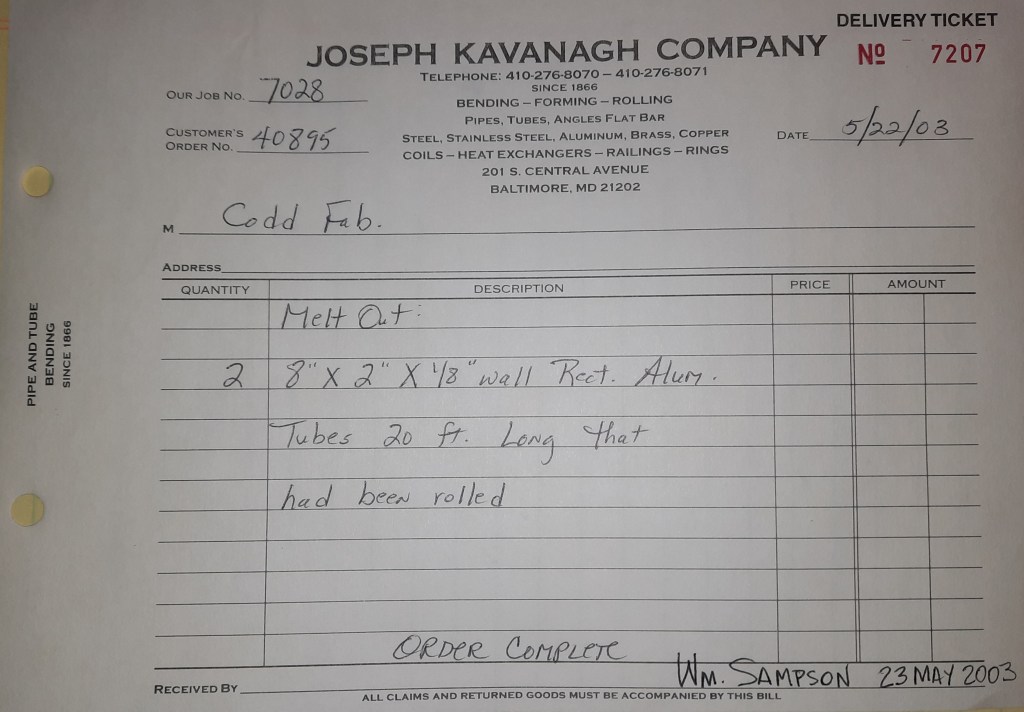 DELIVERY TICKET
JOSEPH KAVANAGH COMPANY
Nº 7207
TELEPHONE: 410-276-8070 – 410-276-8071
SINCE 1866
OUR JOB NO. 7028
BENDING – FORMING – ROLLING
PIPES, TUBES, ANGLES FLAT BAR
CUSTOMER'S ORDER NO. 40895
STEEL, STAINLESS STEEL, ALUMINUM, BRASS, COPPER
DATE 5/22/03
COILS – HEAT EXCHANGERS – RAILINGS – RINGS
201 S. CENTRAL AVENUE
BALTIMORE, MD 21202
M Codd Fab.
ADDRESS
QUANTITY DESCRIPTION PRICE AMOUNT
Melt Out:
2 8" X 2" X 1/8" wall Rect. Alum.
Tubes 20 ft. Long that
had been rolled
ORDER COMPLETE
RECEIVED BY WM. SAMPSON 23 MAY 2003
ALL CLAIMS AND RETURNED GOODS MUST BE ACCOMPANIED BY THIS BILL
PIPE AND TUBE
BENDING
SINCE 1866